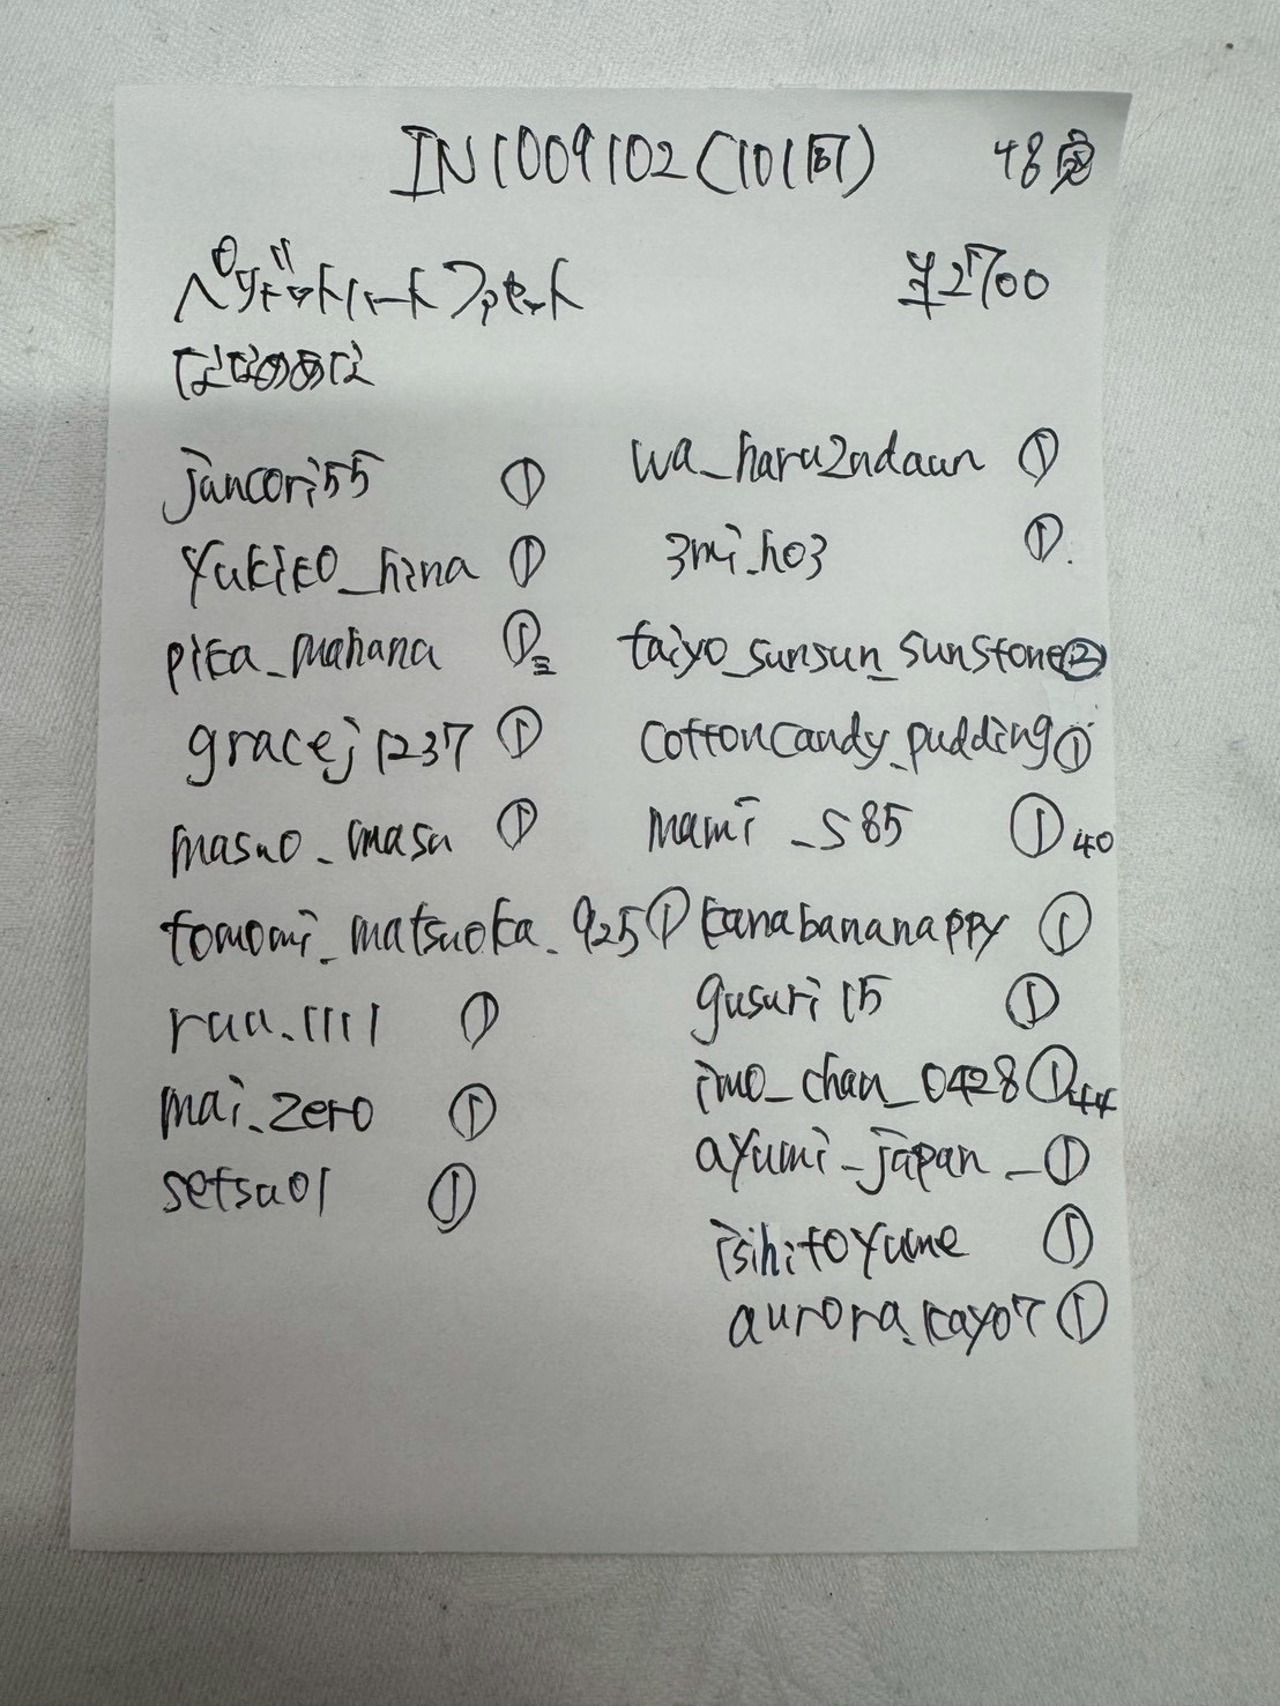 IN1009102(101回) 48
ペリドットハートファセット ¥2700
ななめあな
jancori55 ①
yukiko_hina ①
pika_mahana ①
gracej1237 ①
masuo_masa ①
tomomi_matsuoka_925 ①
ruu.1111 ①
mai_zero ①
setsu01 ①
wa_haru2ndaun ①
3mi_ho3 ①
taiyo_sunsun_sunstone ②
cottoncandy_pudding ①
mami_s85 ① 40
kanabananappy ①
gusuri15 ①
imo_chan_0428 ① 44
ayumi_japan_ ①
isihitoyume ①
aurora.kayo7 ①